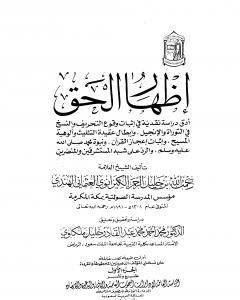 إظهار الحق
أدق دراسة نقدية في إثبات وقوع التحريف والنسخ
في التوراة والإنجيل، وإبطال عقيدة التثليث وألوهية
المسيح، وإثبات إعجاز القرآن، ونبوة محمد صلى الله
عليه وسلم، والرد على شبه المستشرقين والمنصرين
تأليف الشيخ العلامة
رحمت الله بن خليل الرحمن الكيرانوي العثماني الهندي
مؤسس المدرسة الصولتية بمكة المكرمة
دراسة وتحقيق وتعليق
الدكتور محمد أحمد محمد عبد القادر خليل ملكاوي
الأستاذ المساعد بكلية التربية بجامعة الملك سعود - الرياض
الجزء الأول